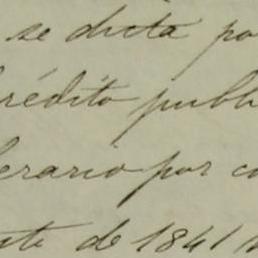 se dicta po
crédito publi
erario por co
te de 1841